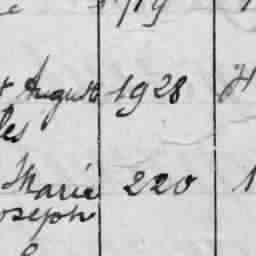 August 1928
les
Marie 220 1
Joseph